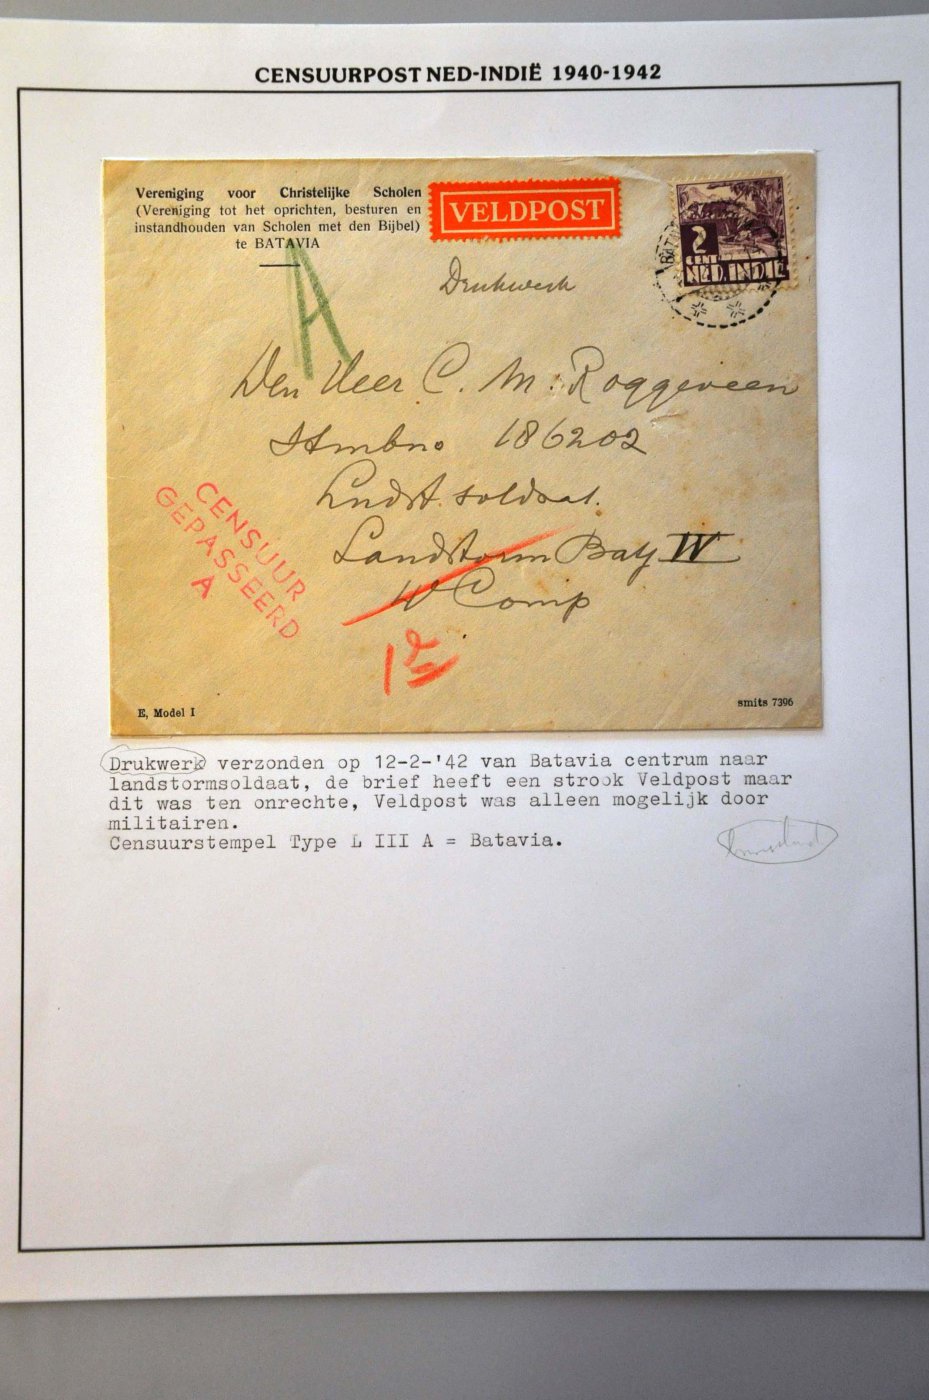 CENSUURPOST NED-INDIË 1940-1942
Vereniging voor Christelijke Scholen
(Vereniging tot het oprichten, besturen en
instandhouden van Scholen met den Bijbel)
te BATAVIA
VELDPOST
2
CENT
NED. INDIË
Drukwerk
A
Den Heer C. M. Roggeveen
Stmbno 186202
Lndst. soldaat.
Landstorm Batj IV
Comp
1e
CENSUUR
GEPASSEERD
A
E, Model I
smits 7396
Drukwerk verzonden op 12-2-'42 van Batavia centrum naar
landstormsoldaat, de brief heeft een strook Veldpost maar
dit was ten onrechte, Veldpost was alleen mogelijk door
militairen.
Censuurstempel Type L III A = Batavia.